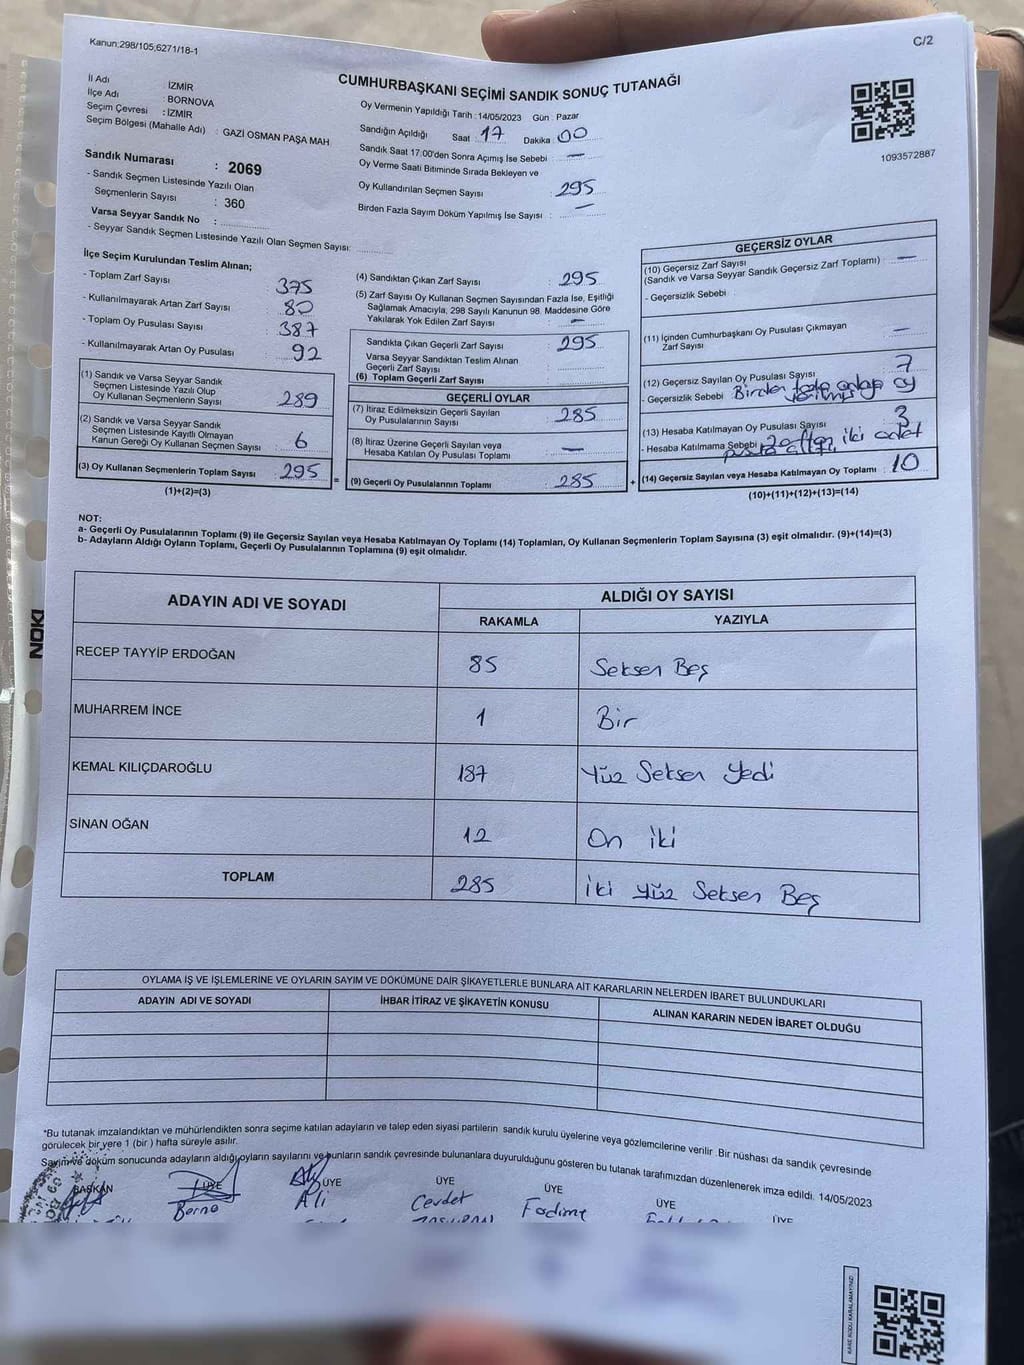 Kanun;298/105;6271/18-1
C/2
CUMHURBAŞKANI SEÇİMİ SANDIK SONUÇ TUTANAĞI
İl Adı İZMİR
İlçe Adı : BORNOVA
Seçim Çevresi : İZMİR
Seçim Bölgesi (Mahalle Adı) : GAZİ OSMAN PAŞA MAH
Sandık Numarası : 2069
- Sandık Seçmen Listesinde Yazılı Olan
Seçmenlerin Sayısı : 360
Varsa Seyyar Sandık No :
- Seyyar Sandık Seçmen Listesinde Yazılı Olan Seçmen Sayısı:
Oy Vermenin Yapıldığı Tarih : 14/05/2023 Gün : Pazar
Sandığın Açıldığı Saat : 17 Dakika : 00
Sandık Saat 17:00'den Sonra Açımış İse Sebebi : —
Oy Verme Saati Bitiminde Sırada Bekleyen ve
Oy Kullandırılan Seçmen Sayısı : 295
Birden Fazla Sayım Döküm Yapılmış İse Sayısı : —
1093572887
İlçe Seçim Kurulundan Teslim Alınan;
- Toplam Zarf Sayısı : 375
- Kullanılmayarak Artan Zarf Sayısı : 80
- Toplam Oy Pusulası Sayısı : 387
- Kullanılmayarak Artan Oy Pusulası : 92
(1) Sandık ve Varsa Seyyar Sandık
Seçmen Listesinde Yazılı Olup
Oy Kullanan Seçmenlerin Sayısı : 289
(2) Sandık ve Varsa Seyyar Sandık
Seçmen Listesinde Kayıtlı Olmayan
Kanun Gereği Oy Kullanan Seçmen Sayısı : 6
(3) Oy Kullanan Seçmenlerin Toplam Sayısı : 295
(1)+(2)=(3)
(4) Sandıktan Çıkan Zarf Sayısı : 295
(5) Zarf Sayısı Oy Kullanan Seçmen Sayısından Fazla İse, Eşitliği
Sağlamak Amacıyla, 298 Sayılı Kanunun 98. Maddesine Göre
Yakılarak Yok Edilen Zarf Sayısı : —
Sandıkta Çıkan Geçerli Zarf Sayısı : 295
Varsa Seyyar Sandıktan Teslim Alınan
Geçerli Zarf Sayısı :
(6) Toplam Geçerli Zarf Sayısı :
GEÇERLİ OYLAR
(7) İtiraz Edilmeksizin Geçerli Sayılan
Oy Pusulalarının Sayısı : 285
(8) İtiraz Üzerine Geçerli Sayılan veya
Hesaba Katılan Oy Pusulası Toplamı : —
= (9) Geçerli Oy Pusulalarının Toplamı : 285
GEÇERSİZ OYLAR
(10) Geçersiz Zarf Sayısı
(Sandık ve Varsa Seyyar Sandık Geçersiz Zarf Toplamı) : —
- Geçersizlik Sebebi :
(11) İçinden Cumhurbaşkanı Oy Pusulası Çıkmayan
Zarf Sayısı : —
(12) Geçersiz Sayılan Oy Pusulası Sayısı : 7
- Geçersizlik Sebebi : Birden fazla adaya oy
(13) Hesaba Katılmayan Oy Pusulası Sayısı : 3
- Hesaba Katılmama Sebebi : iki adet
+ (14) Geçersiz Sayılan veya Hesaba Katılmayan Oy Toplamı : 10
(10)+(11)+(12)+(13)=(14)
NOT:
a- Geçerli Oy Pusulalarının Toplamı (9) ile Geçersiz Sayılan veya Hesaba Katılmayan Oy Toplamı (14) Toplamları, Oy Kullanan Seçmenlerin Toplam Sayısına (3) eşit olmalıdır. (9)+(14)=(3)
b- Adayların Aldığı Oyların Toplamı, Geçerli Oy Pusulalarının Toplamına (9) eşit olmalıdır.
ADAYIN ADI VE SOYADI ALDIĞI OY SAYISI
RAKAMLA YAZIYLA
RECEP TAYYİP ERDOĞAN 85 Seksen Beş
MUHARREM İNCE 1 Bir
KEMAL KILIÇDAROĞLU 187 Yüz Seksen Yedi
SİNAN OĞAN 12 On iki
TOPLAM 285 İki Yüz Seksen Beş
OYLAMA İŞ VE İŞLEMLERİNE VE OYLARIN SAYIM VE DÖKÜMÜNE DAİR ŞİKAYETLERLE BUNLARA AİT KARARLARIN NELERDEN İBARET BULUNDUKLARI
ADAYIN ADI VE SOYADI İHBAR İTİRAZ VE ŞİKAYETİN KONUSU ALINAN KARARIN NEDEN İBARET OLDUĞU
*Bu tutanak imzalandıktan ve mühürlendikten sonra seçime katılan adayların ve talep eden siyasi partilerin sandık kurulu üyelerine veya gözlemcilerine verilir .Bir nüshası da sandık çevresinde
görülecek bir yere 1 (bir ) hafta süreyle asılır.
Sayım ve döküm sonucunda adayların aldığı oyların sayılarını ve bunların sandık çevresinde bulunanlara duyurulduğunu gösteren bu tutanak tarafımızdan düzenlenerek imza edildi. 14/05/2023
BAŞKAN ÜYE ÜYE ÜYE ÜYE ÜYE ÜYE
Berna Ali Cevdet Fadime
KARE KODU KARALAMAYINIZ!
NOKI